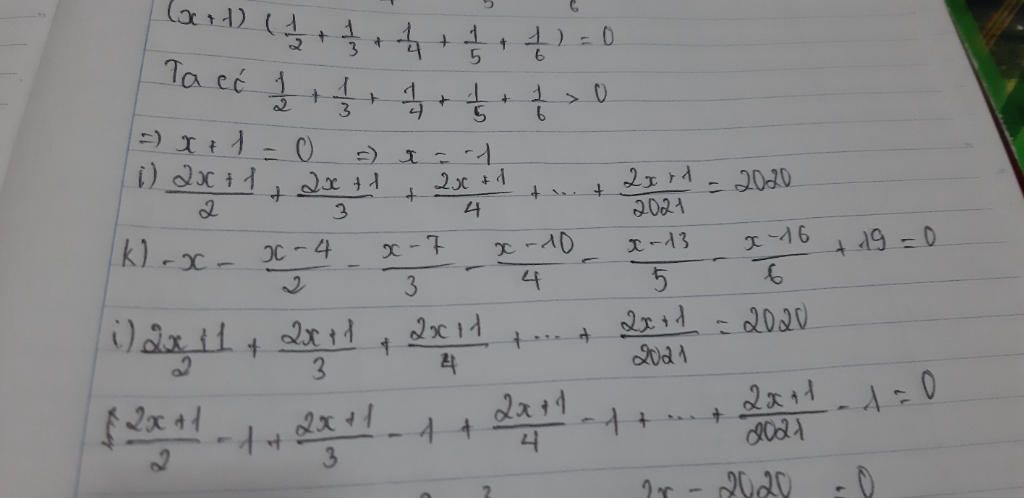 (x+1) (1/2 + 1/3 + 1/4 + 1/5 + 1/6) = 0
Ta có 1/2 + 1/3 + 1/4 + 1/5 + 1/6 > 0
=) x + 1 = 0 =) x = -1
i) (2x+1)/2 + (2x+1)/3 + (2x+1)/4 + ... + (2x+1)/2021 = 2020
k) -x - (x-4)/2 - (x-7)/3 - (x-10)/4 - (x-13)/5 - (x-16)/6 + 19 = 0
i) (2x+1)/2 + (2x+1)/3 + (2x+1)/4 + ... + (2x+1)/2021 = 2020
(2x+1)/2 - 1 + (2x+1)/3 - 1 + (2x+1)/4 - 1 + ... + (2x+1)/2021 - 1 = 0
2x - 2020 = 0